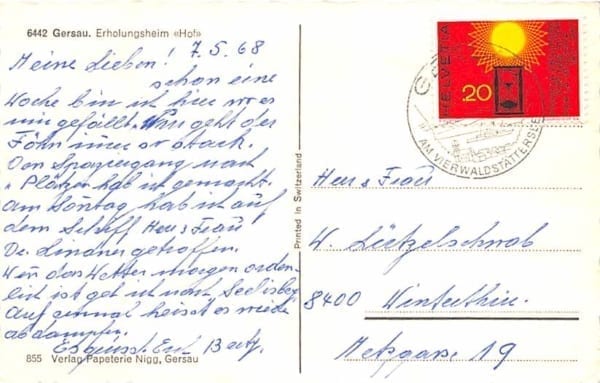 6442 Gersau. Erholungsheim «Hof»
7. 5. 68
Meine Lieben!
schon eine
Woche bin ich hier wo es
mir gefällt. Nur geht der
Föhn immer so stark.
Den Spaziergang nach
"Plätzen hab ich gemacht.
Am Sonntag hab ich auf
dem Schiff Herr & Frau
Dr. Lindner getroffen.
Wen das Wetter morgen orden-
lich ist geh ich nach Seelisberg
Auf einmal heisst es wieder
abdampfen.
Es grüsst Euch
855 Verlag Papeterie Nigg, Gersau
Printed in Switzerland
HELVETIA
.20
AM VIERWALDSTÄTTERSEE
Herr & Frau
W. Lützelschwab
8400 Winterthur.
Metzgasse 19